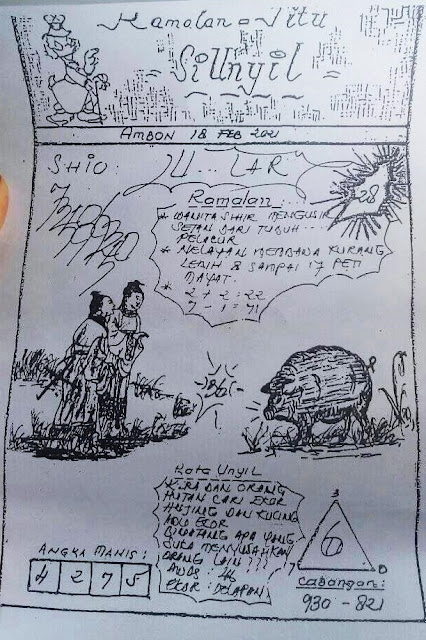 Ramalan = Jitu
= SiUnyil =
AMBON 18 FEB 2021
SHIO : U...LAR
28
Ramalan :
* WANITA SIHIR MENGUSIR
SETAN DARI TUBUH ...
PELACUR
* NELAYAN MEMBAWA KURANG
LEBIH 8 SAMPAI 17 PETI
MAYAT.
* 2 + 2 : 22
7 - 1 = 71
Kata Unyil
KIRA DAN ORANG
HUTAN CARI EKOR
ANJING DAN KUCING
ADU EKOR
BINATANG APA YANG
SUKA MENYUSAHKAN
ORANG LAIN ???
AWAS : 46
EKOR : DELAPAN
ANGKA MANIS :
4 2 7 5
3
6
7 8
Cabangan :
930 - 821